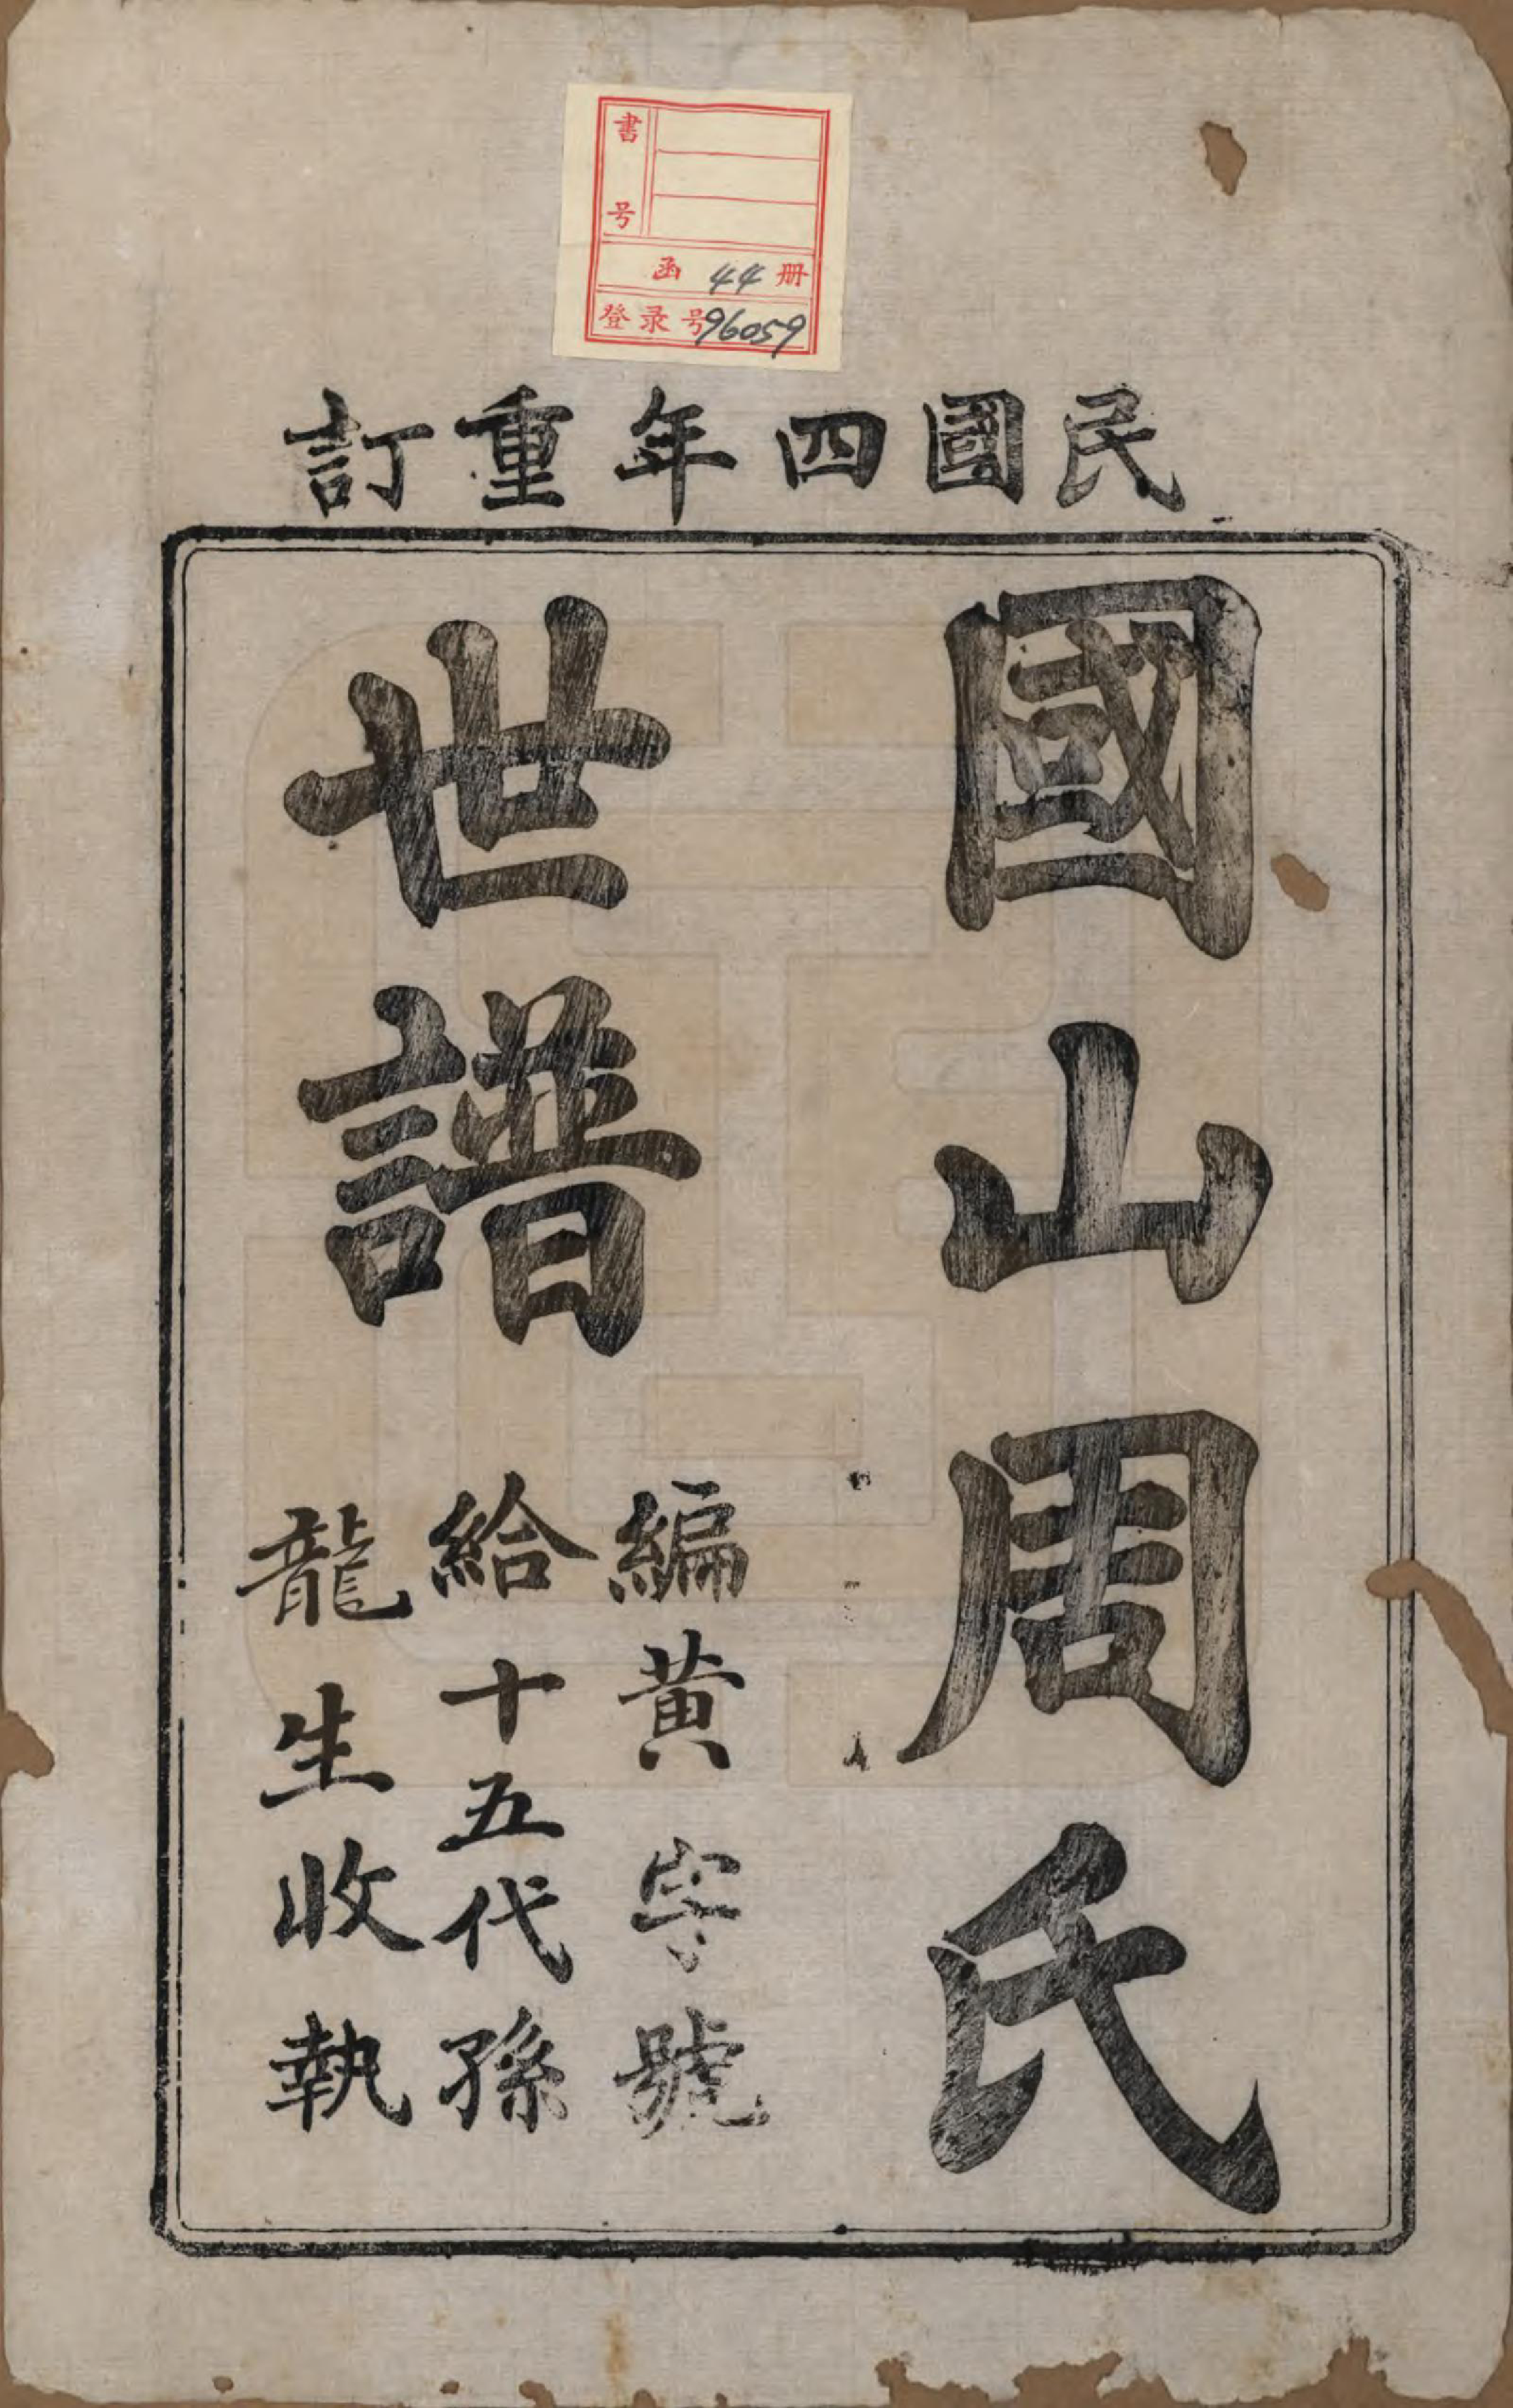 書号
函 44 册
登录号96059
民國四年重訂
國山周氏
世譜
編黄字號
給十五代孫
龍生收執